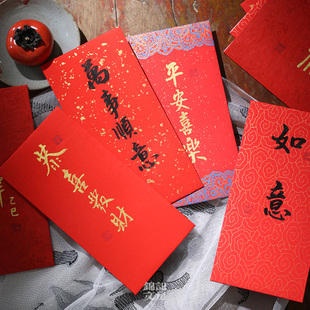 恭喜發財
萬事順意
平安喜樂
如意
乙巳